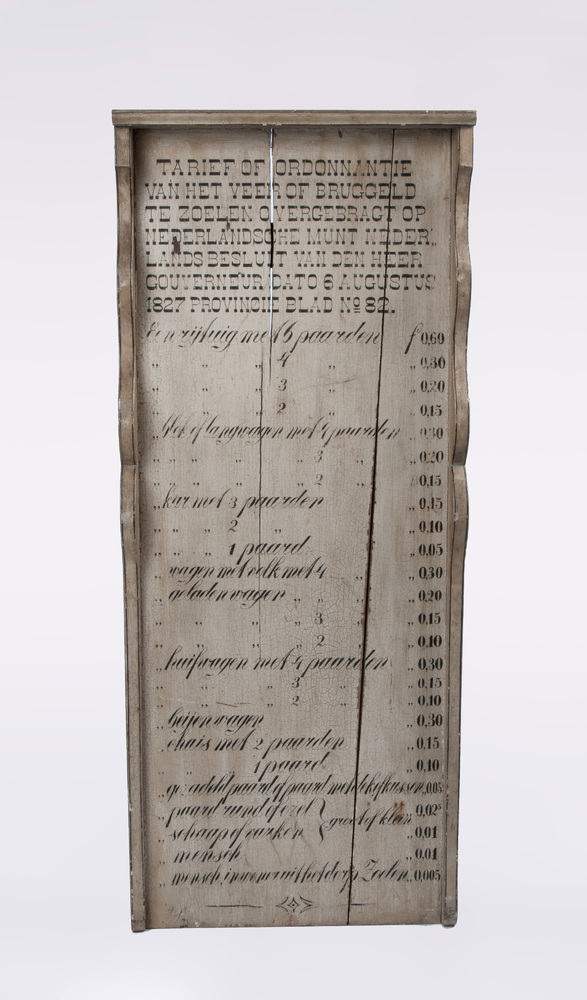 TARIEF OF ORDONNANTIE
VAN HET VEER OF BRUGGELD
TE ZOELEN OVERGEBRAGT OP
NEDERLANDSCHE MUNT NEDER„
LANDS BESLUIT VAN DEN HEER
GOUVERNEUR DATO 6 AUGUSTUS
1827 PROVINCIE BLAD No 82.
Een rijtuig met 6 paarden f 0,69
„ „ „ 4 „ „ 0,30
„ „ „ 3 „ „ 0,20
„ „ „ 2 „ „ 0,15
„ blok of langwagen met 4 paarden „ 0,30
„ „ „ „ „ 3 „ „ 0,20
„ „ „ „ „ 2 „ „ 0,15
„ kar met 3 paarden „ 0,15
„ „ „ 2 „ „ 0,10
„ „ „ 1 paard „ 0,05
„ wagen met volk met 4 „ „ 0,30
„ geladen wagen „ „ „ „ 0,20
„ „ „ 3 „ „ 0,15
„ „ „ 2 „ „ 0,10
„ huifwagen met 4 paarden „ 0,30
„ „ „ 3 „ „ 0,15
„ „ „ 2 „ „ 0,10
„ bijenwagen „ 0,30
„ chais met 2 paarden „ 0,15
„ „ „ 1 paard „ 0,10
„ gezadeld paard of paard met dek of kussen „ 0,05
„ paard rund of ezel } „ 0,02⁵
„ schaap of varken } groot of klein „ 0,01
„ mensch „ 0,01
„ mensch, inwoner uit het dorp Zoelen „ 0,005